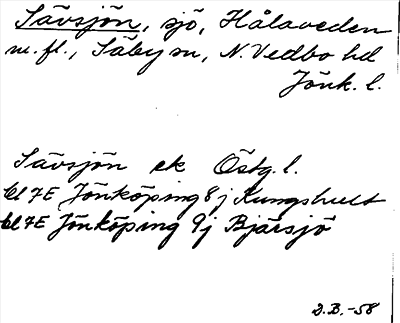 Sävsjön, sjö, Hålaveden
m.fl., Säby sn, N. Vedbo hd
Jönk. l.
Sävsjön ek Östg. l.
bl 7E Jönköping 8j Kungshult
bl 7E Jönköping 9j Bjärsjö
D.B.-58